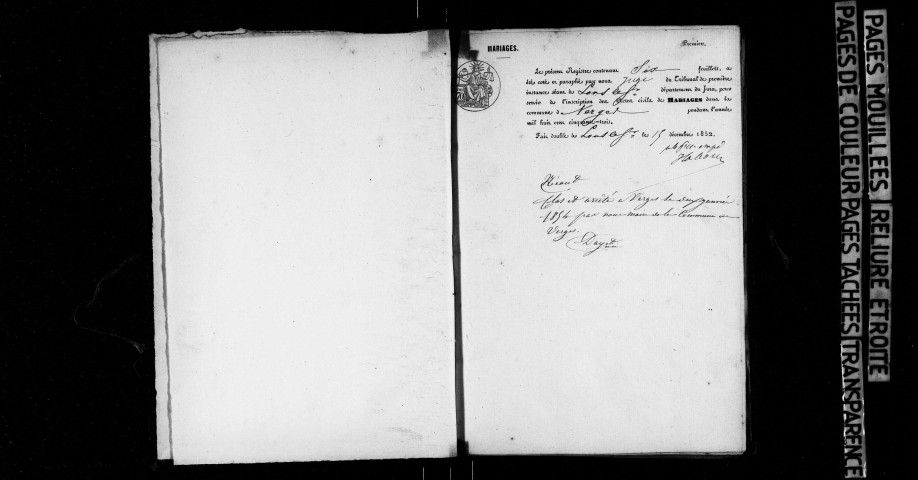 MARIAGES.
Premier.
Le présent Registre contenant Six feuillets, a
été coté et paraphé par nous Juge du Tribunal de première
instance séant de Lons le Sr département du Jura, pour
servir à l'inscription des Actes civils de MARIAGES dans la
commune d Verges pendant l'année
mil huit cent cinquante-trois.
Fait double à Lons le Sr le 15 décembre 1852.
Néant
Clos et arrêté à Verges le deux janvier
1854 par nous maire de la Commune de
Verges.
PAGES MOUILLEES RELIURE ETROITE
PAGES DE COULEUR PAGES TACHEES TRANSPARENCE